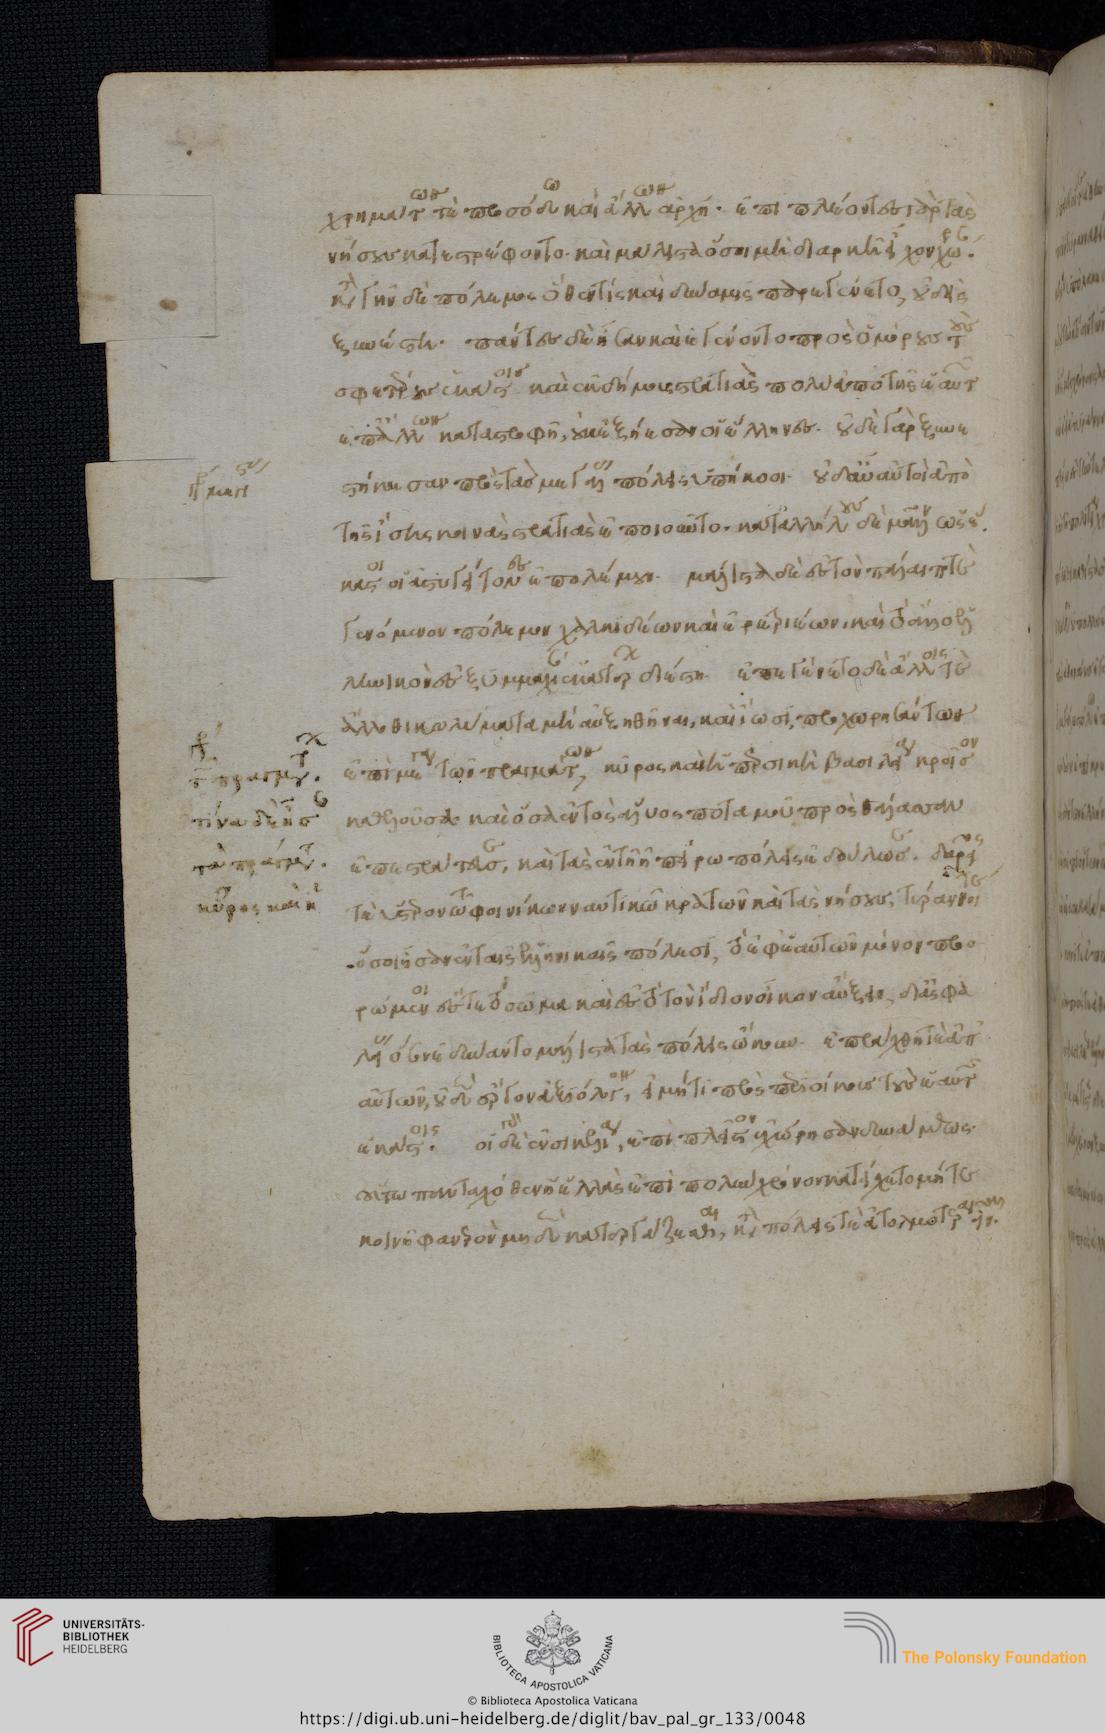 χρημάτων τε προσόδω καὶ ἄλλων ἀρχῆ· ἐπιπλέοντες γὰρ τὰς
νήσους κατεστρέφοντο. καὶ μάλιστα ὅσοι μὴ διαρκῆ εἶχον χώραν.
κατὰ γῆν δὲ πόλεμος ὅθεν τίς καὶ δύναμις παρεγένετο, οὐδεὶς
ξυνέστη· πάντες δὲ ἦσαν καὶ ἐγένοντο πρὸς ὁμόρους τοὺς
σφετέρους ἑκάστοις καὶ ἐκδήμους στρατιὰς πολὺ ἀπὸ τῆς ἑαυτῶν
ἐπ' ἄλλων καταστροφῆ, οὐκ ἐξήεσαν οἱ ἕλληνες. οὐδὲ γὰρ ξυνει
στήκεσαν πρὸς τὰς μεγίστας πόλεις ὑπήκοοι· οὐδ' αὖ αὐτοὶ ἀπὸ
τῆς ἴσης κοινὰς στρατιὰς ἐποιοῦντο. κατ' ἀλλήλους δὲ μᾶλλον ὡς ἕ
καστοι οἱ ἀστυγείτονες ἐπολέμουν· μάλιστα δὲ ἐς τὸν πάλαι ποτὲ
γενόμενον πόλεμον χαλκιδέων καὶ ἐρετριέων, καὶ τὸ ἄλλο ἑλ
ληνικὸν ἐς ξυμμαχίαν ἑκατέρων διέστη· ἐπεγένετο δὲ ἄλλοις τὲ
ἄλλοθι κωλύματα μὴ αὐξηθῆναι, καὶ ἴωσι, προχωρησάντων
ἐπὶ μέγα τῶν πραγμάτων, κῦρος καὶ ἡ περσικὴ βασιλεία κροῖσον
καθελοῦσα καὶ ὅσα ἐντὸς ἅλυος ποταμοῦ πρὸς θάλασσαν
ἐπεστράτευσε, καὶ τὰς ἐν τῆ ἠπείρω πόλεις ἐδούλωσε. δαρεῖος
τὲ ὕστερον τῶ φοινίκων ναυτικῶ κρατῶν καὶ τὰς νήσους, τύραννοι δὲ
ὅσοι ἦσαν ἐν ταῖς ἑλληνικαῖς πόλεσι, τὸ ἐφ' ἑαυτῶν μόνον προο
ρώμενοι ἔς τε τὸ σῶμα καὶ ἐς τὸ τὸν ἴδιον οἶκον αὔξειν, δι' ἀσφα
λείας ὅσον ἐδύναντο μάλιστα τὰς πόλεις ᾤκουν· ἐπράχθη τε ἀπ'
αὐτῶν, οὐδὲν ἔργον ἀξιόλογον, εἰ μή τι πρὸς περιοίκους τοὺς ἑαυτῶν
ἑκάστοις. οἱ γὰρ ἐν σικελία, ἐπὶ πλεῖστον ἐχώρησαν δυνάμεως.
οὕτω πανταχόθεν ἡ ἑλλὰς ἐπὶ πολὺν χρόνον κατείχετο μήτε
κοινῆ φανερὸν μηδὲν κατεργάζεσθαι, κατὰ πόλεις τὲ ἀτολμοτέρα εἶναι.
κῦρος καὶ ἡ
https://digi.ub.uni-heidelberg.de/diglit/bav_pal_gr_133/0048
UNIVERSITÄTS-
BIBLIOTHEK
HEIDELBERG
BIBLIOTECA APOSTOLICA VATICANA
© Biblioteca Apostolica Vaticana
The Polonsky Foundation